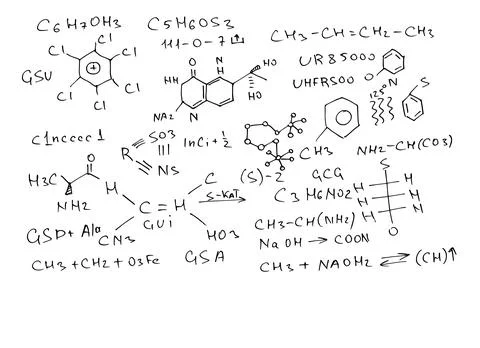 C6H7OH3
C5M6OS3
111-0-7
CH3-CH=CH2-CH3
Cl Cl
Cl Cl
Cl Cl
GSU
O
HH
N
H
HO
HO
NA2 N
UR85000
UHFR500 O
N
125°
S
C1ncccc1
R SO3
NS
InCi+1/2
CH3
NH2-CH(CO3)
H3C O H
NH2
C
C=H
GUi
CN3 HO3
(S)-2
S-KAT
GCG
C3H6NO2
S
H H
H N
O
GSD+Ala
CH3-CH(NH2)
NaOH → COON
CH3+CH2+O3Fe
GSA
CH3 + NAOH2 ⇄ (CH)↑